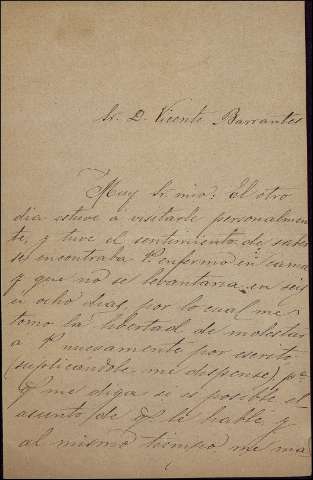 Sr. D. Vicente Barrantes
Muy Sr. mio: El otro
dia estuve á visitarle personalmen
te, y tuve el sentimiento de saber
se encontraba V. enfermo en cama
y que no se levantaria en seis
u ocho dias, por lo cual me
tomo la libertad de molestar
a V. nuevamente por escrito
(suplicandole me dispense) pª
q. me diga se es posible el
asunto de q. le hablé, y
al mismo tiempo me ma